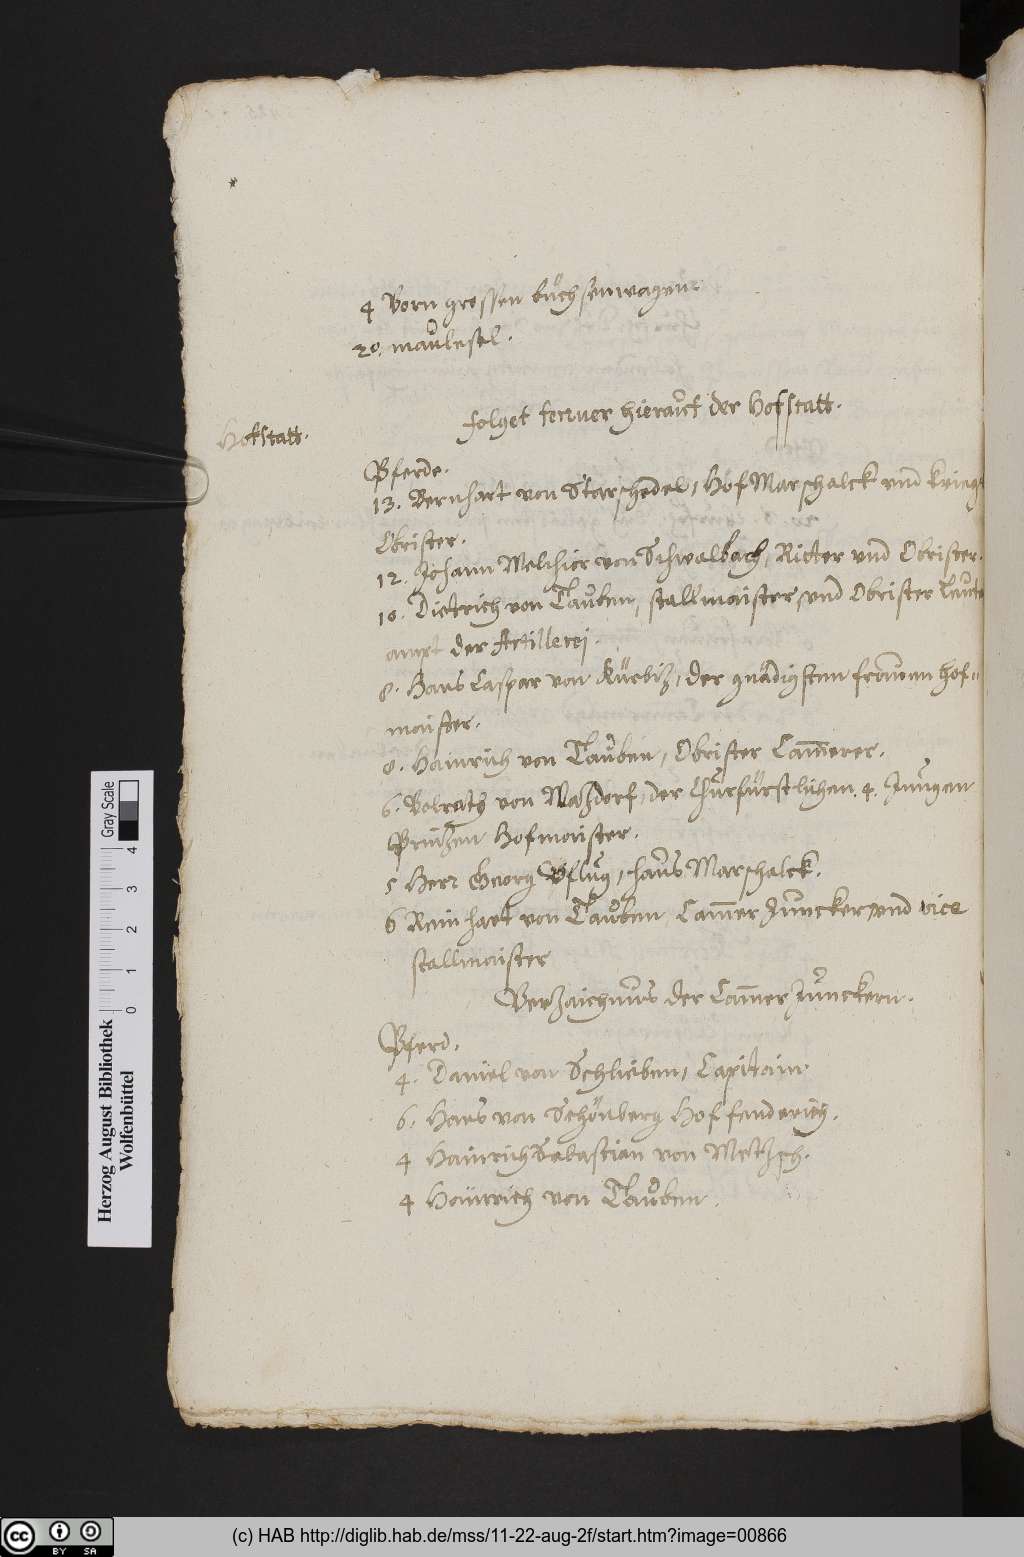 4 Vorn grossen büchsenwagen.
20. maulesel.
folget ferner hierauf der Hofstatt.
Hofstatt.
Pferde.
13. Bernhart von Starschedel, HofMarschalck vnd kriegs
Obrister.
12. Johann Melchior von Schwalbach, Ritter vnd Obrister.
10. Dietrich von Tauben, stallmaister, vnd Obrister Leute
ampt der Artillerej.
8. Hans Caspar von Kürbitz, der gnädigsten frauen hof-
maister.
8. Hainrich von Tauben, Obrister Cam̄erer.
6. Volratz von Watzdorf, der Churfürstlichen 4. Jungen
Printzen Hofmaister.
5 Herr Georg Pflug, haus Marschalck.
6 Rein hart von Tauben Cam̄er Junckervnd vice
stallmaister
Vertzaichnus der Cam̄er Junckern.
Pferd.
4. Daniel von Schlieben, Capitain
6. Hans von Schönberg Hoffenderich.
4 Hainrich Sebastian von Metzsch.
4 Heinrich von Tauben.
Herzog August Bibliothek
Wolfenbüttel
0 1 2 3 4
Gray Scale
cc BY SA
(c) HAB http://diglib.hab.de/mss/11-22-aug-2f/start.htm?image=00866